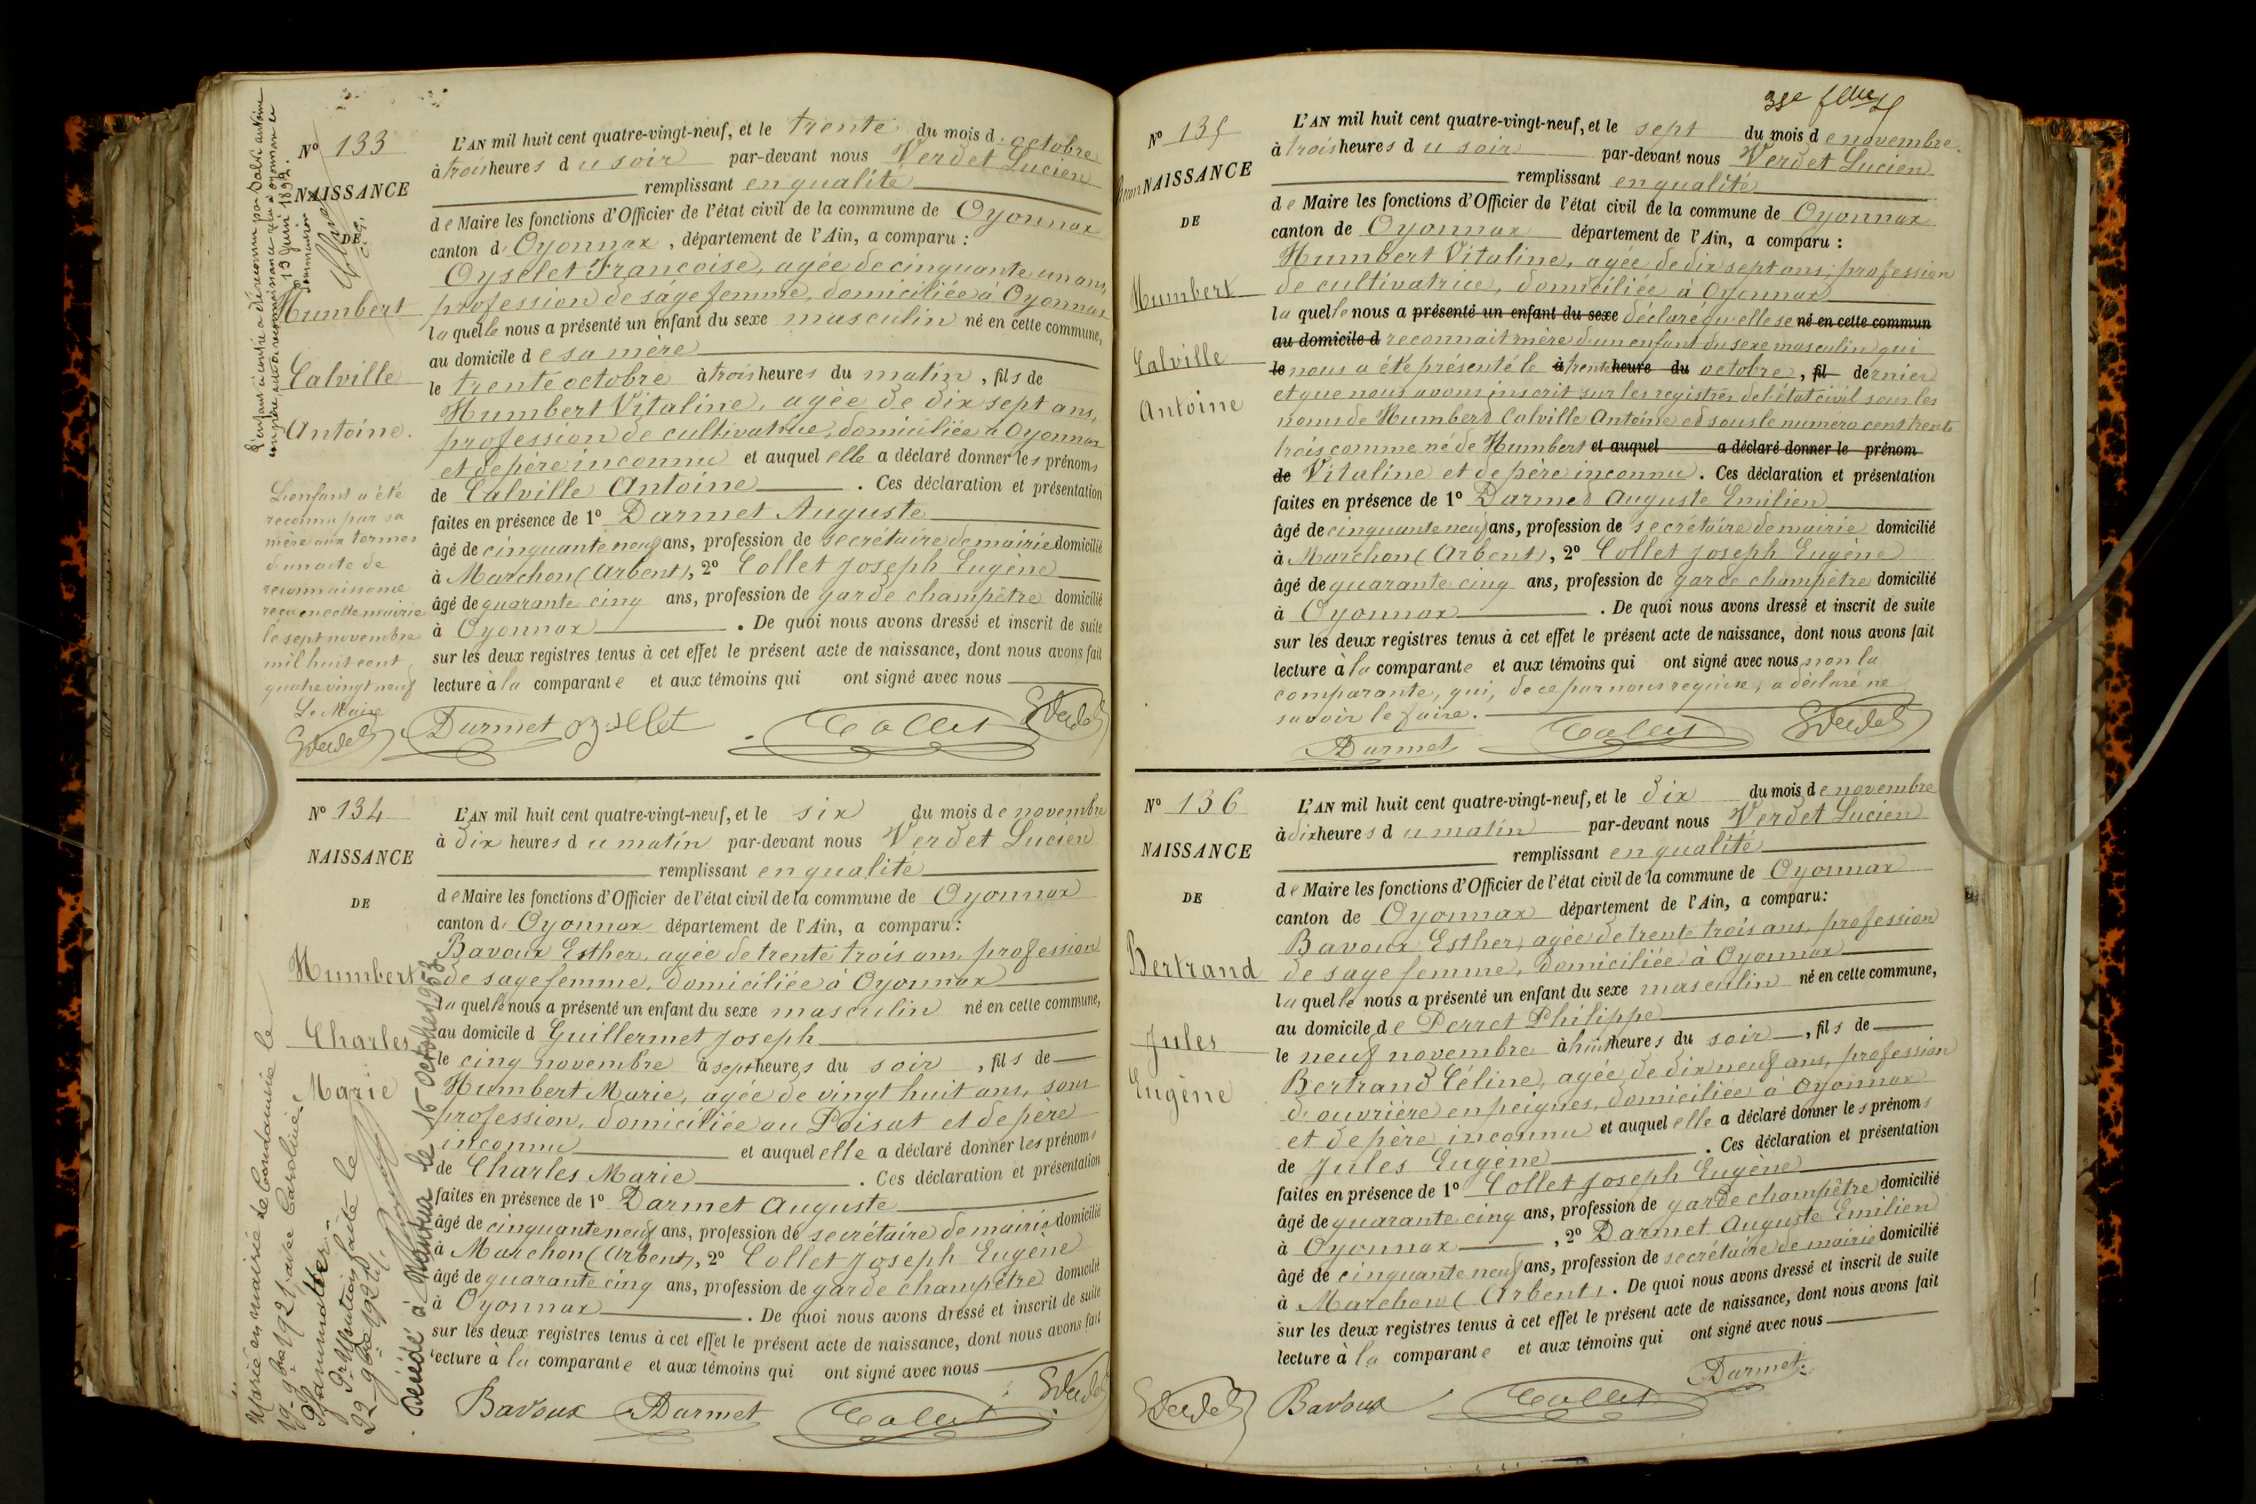 N° 133
NAISSANCE
DE
Humbert
Calville
Antoine.
L'enfant ci-contre a été reconnu par
antoine
19 Juin 1892.
L'enfant a été
reconnu par sa
mère aux termes
d'un acte de
reconnaissance
reçu en cette mairie
le sept novembre
mil huit cent
quatre vingt neuf
Le Maire
L'AN mil huit cent quatre-vingt-neuf, et le trente du mois d'octobre
à trois heures du soir par-devant nous Verdet Lucien
remplissant en qualité
de Maire les fonctions d'Officier de l'état civil de la commune de Oyonnax
canton d'Oyonnax, département de l'Ain, a comparu :
Oysellet Françoise, agée de cinquante un ans,
profession de sage femme, domiciliée à Oyonnax
laquelle nous a présenté un enfant du sexe masculin né en cette commune,
au domicile de sa mère
le trente octobre à trois heures du matin, fils de
Humbert Vitaline, agée de dix sept ans,
profession de cultivatrice, domiciliée à Oyonnax
et de père inconnu et auquel elle a déclaré donner les prénoms
de Calville Antoine. Ces déclaration et présentation
faites en présence de 1° Darmet Auguste
âgé de cinquante neuf ans, profession de secrétaire de mairie domicilié
à Marchon (Arbent), 2° Collet Joseph Eugène
âgé de quarante cinq ans, profession de garde champêtre domicilié
à Oyonnax. De quoi nous avons dressé et inscrit de suite
sur les deux registres tenus à cet effet le présent acte de naissance, dont nous avons fait
lecture à la comparante et aux témoins qui ont signé avec nous
Darmet Oysellet Collet Verdet
N° 134
NAISSANCE
DE
Humbert
Charles
Marie
Marié en mairie de le
19-9bre 1921 avec Caroline
Mention faite le
22-9bre 1921
Décédé à Nantua le 16 octobre 1953
L'AN mil huit cent quatre-vingt-neuf, et le six du mois de novembre
à dix heures du matin par-devant nous Verdet Lucien
remplissant en qualité
de Maire les fonctions d'Officier de l'état civil de la commune de Oyonnax
canton d'Oyonnax département de l'Ain, a comparu :
Bavoux Esther, agée de trente trois ans, profession
de sage femme, domiciliée à Oyonnax
laquelle nous a présenté un enfant du sexe masculin né en cette commune,
au domicile d Guillermet Joseph
le cinq novembre à sept heures du soir, fils de
Humbert Marie, agée de vingt huit ans, sans
profession, domiciliée au Poisat et de père
inconnu et auquel elle a déclaré donner les prénoms
de Charles Marie. Ces déclaration et présentation
faites en présence de 1° Darmet Auguste
âgé de cinquante neuf ans, profession de secrétaire de mairie domicilié
à Marchon (Arbent), 2° Collet Joseph Eugène
âgé de quarante cinq ans, profession de garde champêtre domicilié
à Oyonnax. De quoi nous avons dressé et inscrit de suite
sur les deux registres tenus à cet effet le présent acte de naissance, dont nous avons fait
lecture à la comparante et aux témoins qui ont signé avec nous
Bavoux Darmet Collet Verdet
N° 135
NAISSANCE
DE
Humbert
Calville
Antoine
L'AN mil huit cent quatre-vingt-neuf, et le sept du mois de novembre
à trois heures du soir par-devant nous Verdet Lucien
remplissant en qualité
de Maire les fonctions d'Officier de l'état civil de la commune de Oyonnax
canton de Oyonnax département de l'Ain, a comparu :
Humbert Vitaline, agée de dix sept ans, profession
de cultivatrice, domiciliée à Oyonnax
laquelle nous a présenté un enfant du sexe déclaré qu'elle se né en cette commun
au domicile d reconnait mère d'un enfant du sexe masculin qui
le nous a été présenté le à trente heure du octobre, fil dernier
et que nous avons inscrit sur les registres de l'état civil sous les
noms de Humbert Calville Antoine et sous le numero cent trente
trois comme né de Humbert et auquel a déclaré donner le prénom
de Vitaline et de père inconnu. Ces déclaration et présentation
faites en présence de 1° Darmet Auguste Emilien
âgé de cinquante neuf ans, profession de secrétaire de mairie domicilié
à Marchon (Arbent), 2° Collet Joseph Eugène
âgé de quarante cinq ans, profession de garde champêtre domicilié
à Oyonnax. De quoi nous avons dressé et inscrit de suite
sur les deux registres tenus à cet effet le présent acte de naissance, dont nous avons fait
lecture à la comparante et aux témoins qui ont signé avec nous non la
comparante, qui, de ce par nous requise, a déclaré ne
savoir le faire.
Darmet Collet Verdet
N° 136
NAISSANCE
DE
Bertrand
Jules
Eugène
L'AN mil huit cent quatre-vingt-neuf, et le dix du mois de novembre
à dix heures du matin par-devant nous Verdet Lucien
remplissant en qualité
de Maire les fonctions d'Officier de l'état civil de la commune de Oyonnax
canton de Oyonnax département de l'Ain, a comparu :
Bavoux Esther, agée de trente trois ans, profession
de sage femme, domiciliée à Oyonnax
laquelle nous a présenté un enfant du sexe masculin né en cette commune,
au domicile de Perret Philippe
le neuf novembre à huit heures du soir, fils de
Bertrand Céline, agée de dix neuf ans, profession
d'ouvrière en peignes, domiciliée à Oyonnax
et de père inconnu et auquel elle a déclaré donner les prénoms
de Jules Eugène. Ces déclaration et présentation
faites en présence de 1° Collet Joseph Eugène
âgé de quarante cinq ans, profession de garde champêtre domicilié
à Oyonnax, 2° Darmet Auguste Emilien
âgé de cinquante neuf ans, profession de secrétaire de mairie domicilié
à Marchon (Arbent). De quoi nous avons dressé et inscrit de suite
sur les deux registres tenus à cet effet le présent acte de naissance, dont nous avons fait
lecture à la comparante et aux témoins qui ont signé avec nous
Darmet
Verdet Bavoux Collet